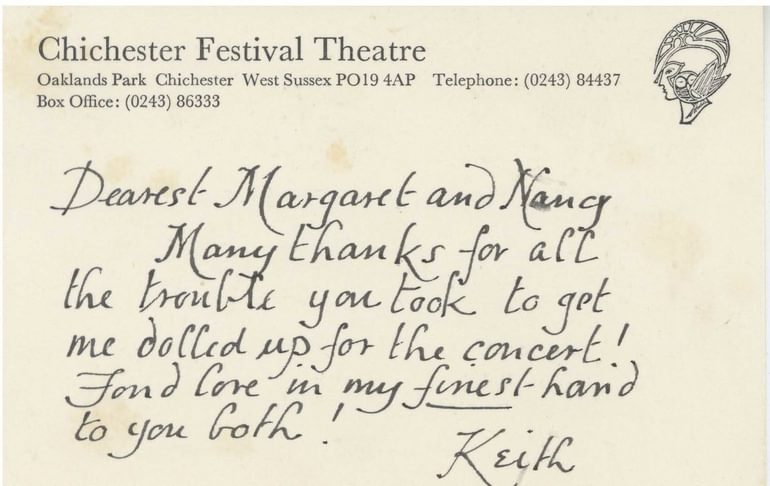 Chichester Festival Theatre
Oaklands Park Chichester West Sussex PO19 4AP Telephone: (0243) 84437
Box Office: (0243) 86333
Dearest Margaret and Nancy
Many thanks for all
the trouble you took to get
me dolled up for the concert!
Fond love in my finest hand
to you both!
Keith